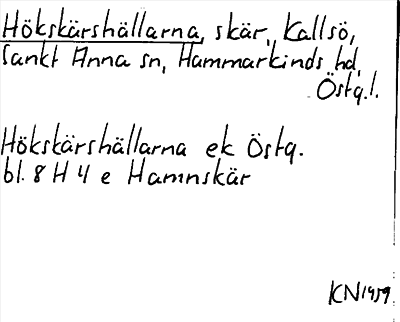 Hökskärshällarna, skär, Kallsö,
Sankt Anna sn, Hammarkinds hd,
Östg.l.
Hökskärshällarna ek Östg.
bl. 8 H 4 e Hamnskär
KN 1959